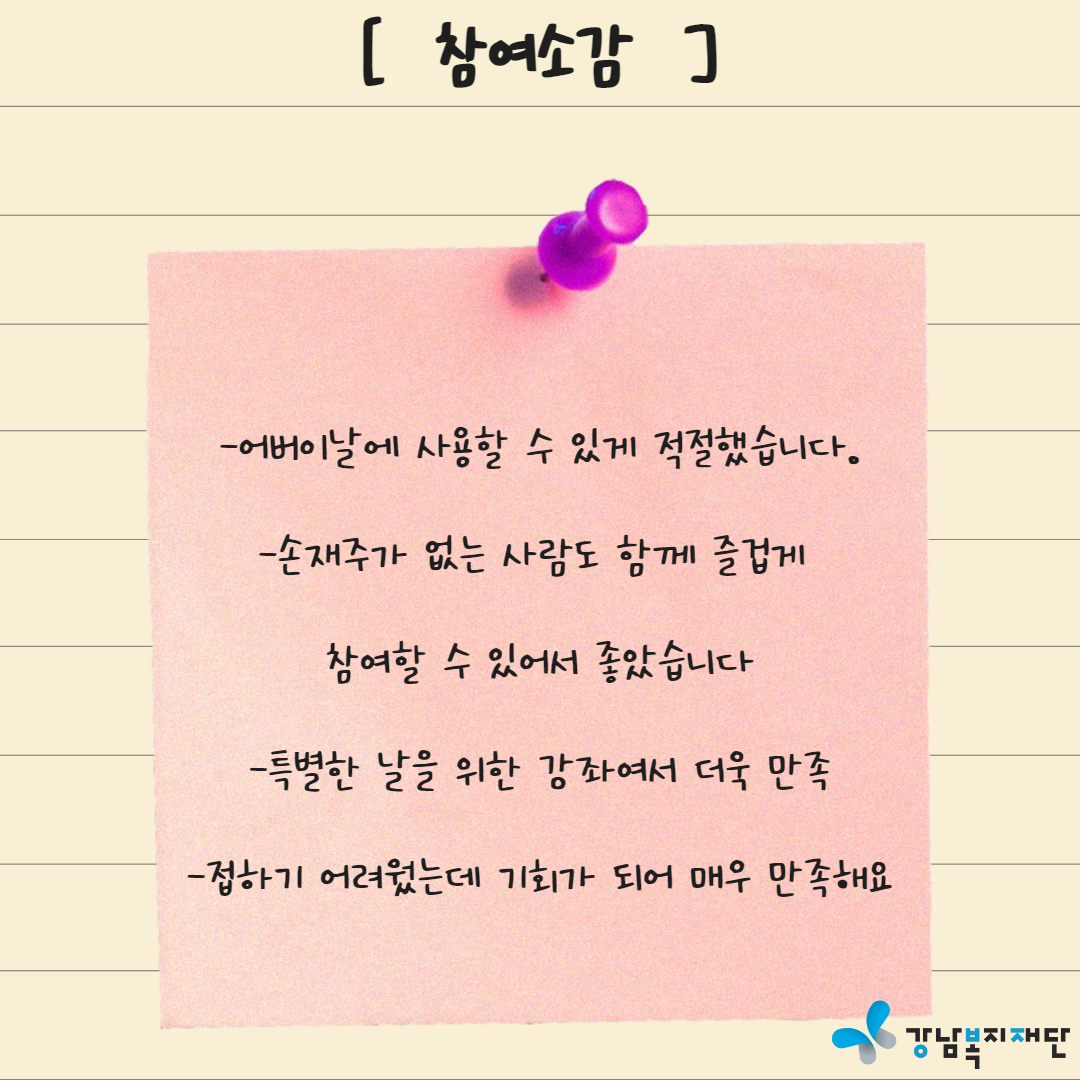 [ 참여소감 ]
-어버이날에 사용할 수 있게 적절했습니다.
-손재주가 없는 사람도 함께 즐겁게
참여할 수 있어서 좋았습니다
-특별한 날을 위한 강좌여서 더욱 만족
-접하기 어려웠는데 기회가 되어 매우 만족해요
강남복지재단